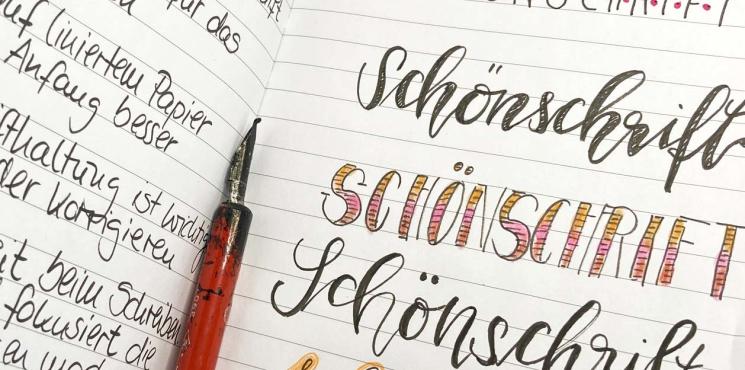 für das
auf liniertem Papier
Anfang besser
fthaltung ist wichtig
der korrigieren
beim Schreiben
fokusiert die
Schönschrift
SCHÖNSCHRIFT
Schönschrift